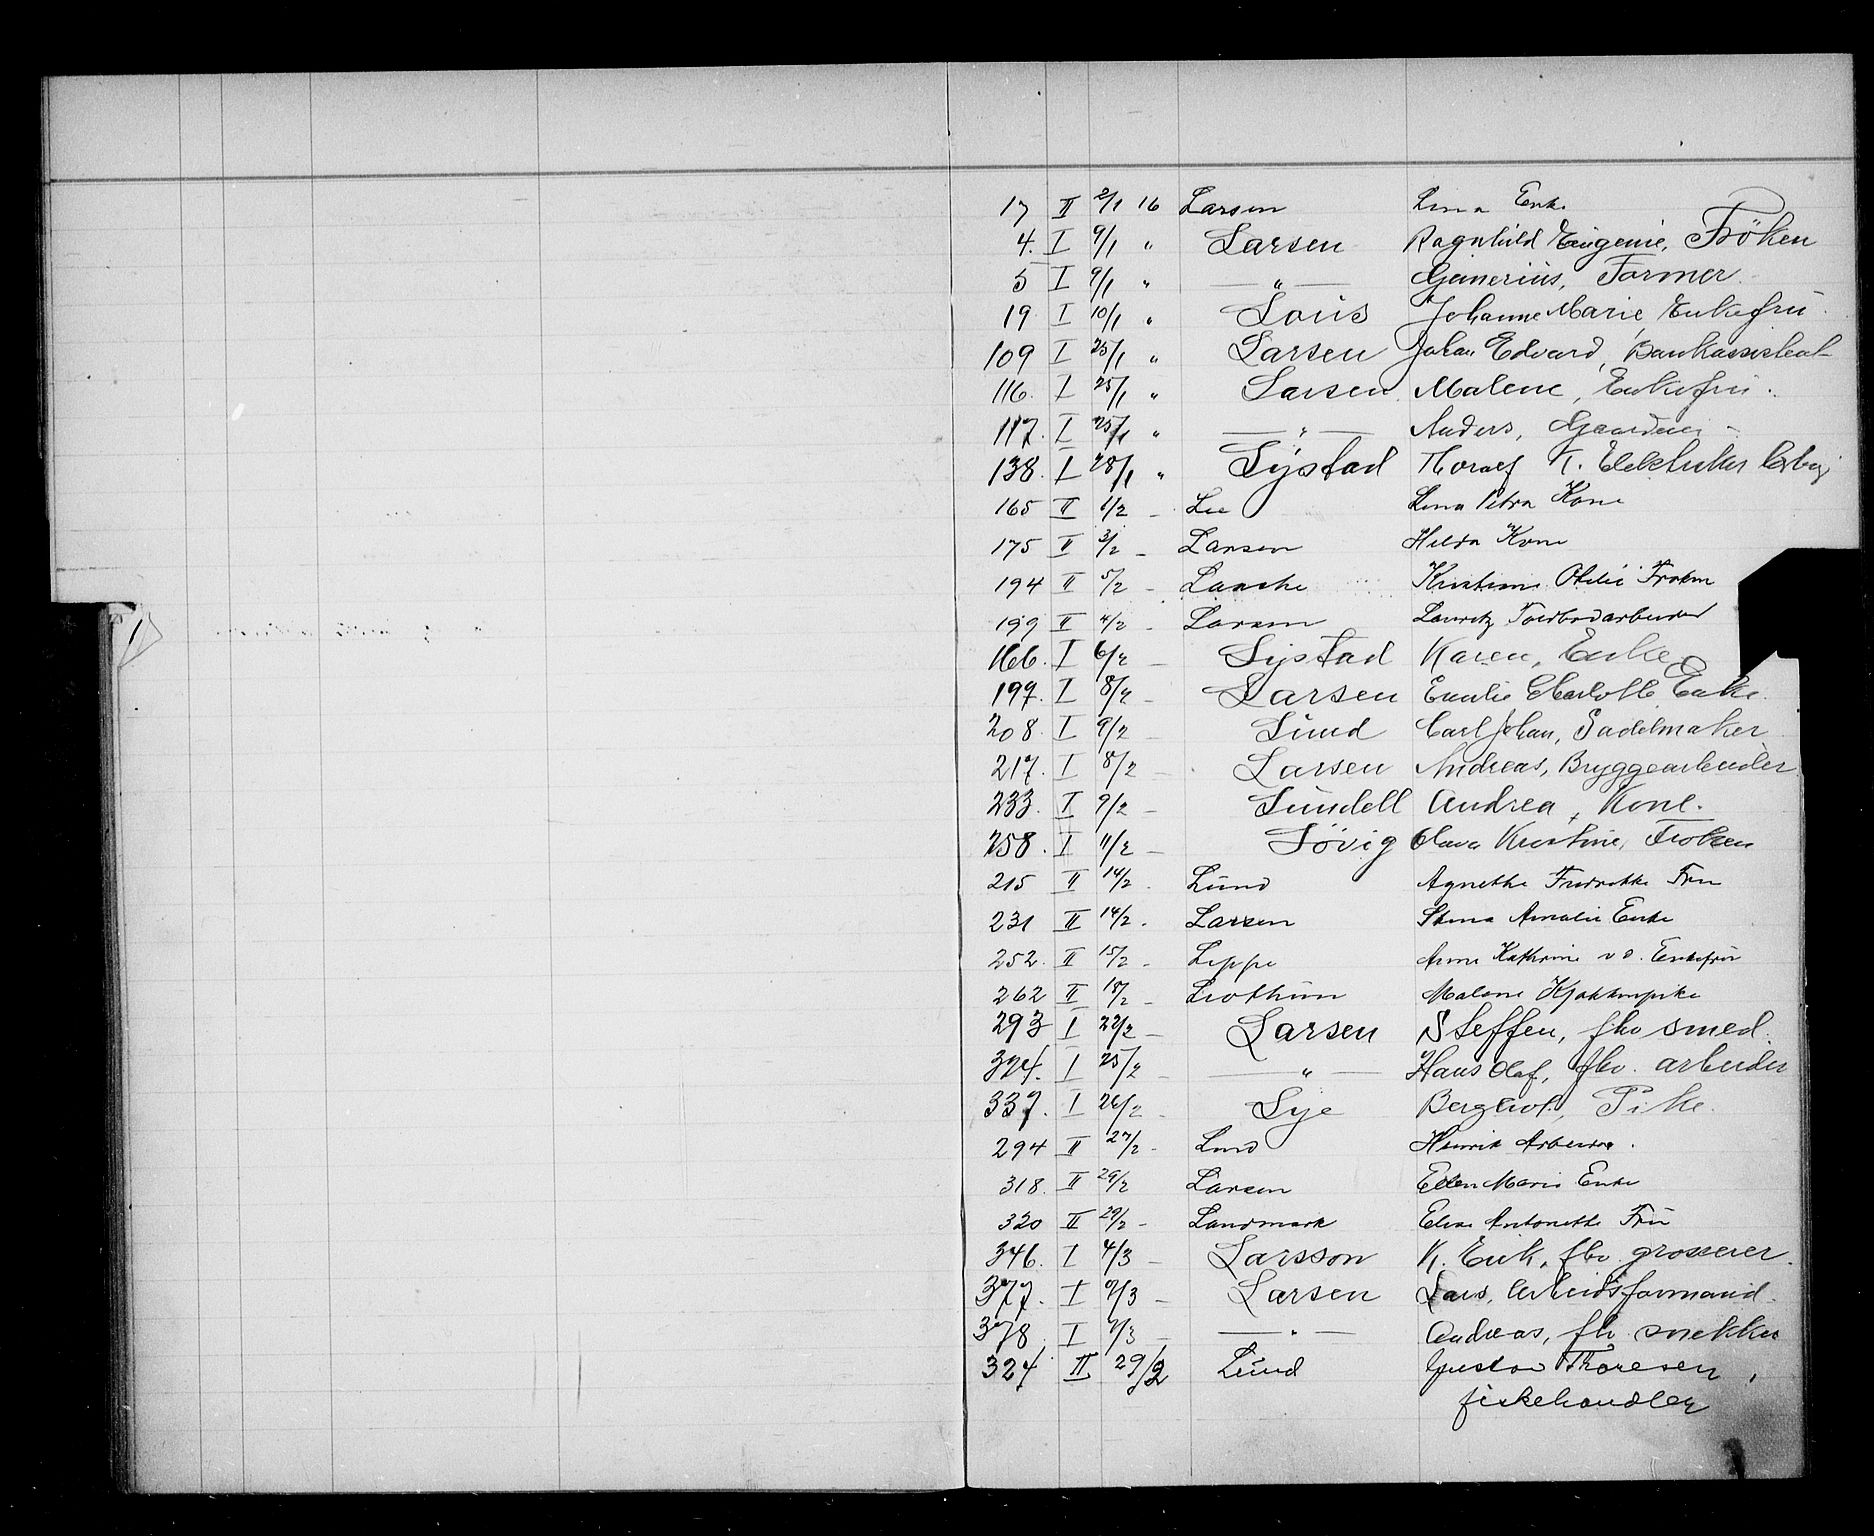 17 II 2/1 16 Larsen Lina Enke
4. I 9/1 " Larsen Ragnhild Eugenie, Fröken
5 I 9/1 " — " — Gunerius, Former
19 I 10/1 " Louis Johanne Marie Enkefru.
109 I 25/1 " Larsen Johan Edvard, Bankassistent
116. I 25/1 " Larsen Malene, Enkefru.
117. I 25/1 " — " — Anders,
138. I 28/1 " Lystad Thoralf K. Elektriker
165 II 1/2 – Lie Lina Petra Kone
175 II 3/2 – Larsen Hilda Kone
194 II 5/2 – Laache Kristine Otelie Frøken
199 II 4/2 – Larsen Lauritz Toldbodarbeider
166. I 6/2 – Lystad Karen, Enke
199. I 8/2 – Larsen Emilie Charlotte Enke.
208. I 9/2 Lund Carl Johan, Sadelmaker
217. I 8/2 – Larsen Andreas, Bryggearbeider
233. I 9/2 – Lundell Andrea, Kone.
258. I 11/2 – Lövig Olava Kristine, Froken
215 II 14/2 . Lund Agnethe Fredrikke Fru
231 II 14/2 . Larsen Stina Amalie Enke
252. II 15/2 – Lippe Anne Kathrine v d. Enkefru
262 II 18/2 – Malene Kjøkkenpike
293 I 22/2 – Larsen Steffen, fhv smed.
324. I 25/2 – — " — Hans Olaf, fhv. arbeider
337. I 26/2 – Lye Bergliot, Pike.
294 II 27/2 – Lund Henrik Arbeider.
318. II 29/2 Larsen Ellen Marie Enke
320 II 29/2 – Landmark Elise Antonette Fru
346. I 4/3 – Larsson K. Erik, fhv grosserer.
377. I 9/3 – Larsen Lars, Arbeidsformand.
378 I 9/3 – — " — Andreas, fhv snekker
324 II 29/2 Lund Gustav Thoresen,
fiskehandler